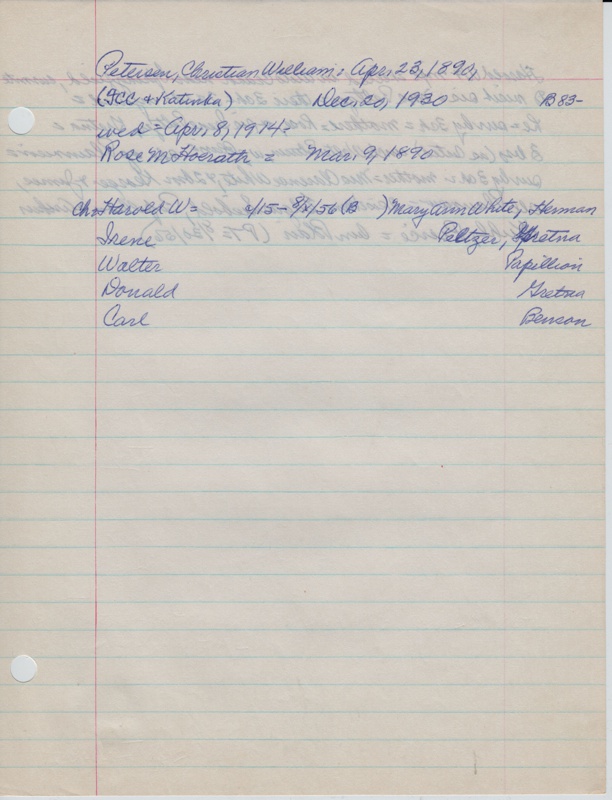 Petersen, Christian William: Apr. 23, 1890,
(JCC & Katinka) Dec. 20, 1930 B83-
wed = Apr. 8, 1914:
Rose M Hoerath = Mar. 9, 1890
ch: Harold W = 4/15 - 8/x/56 (B ) Mary Ann White, Herman
Irene Peltzer, Gretna
Walter Papillion
Donald Gretna
Carl Benson